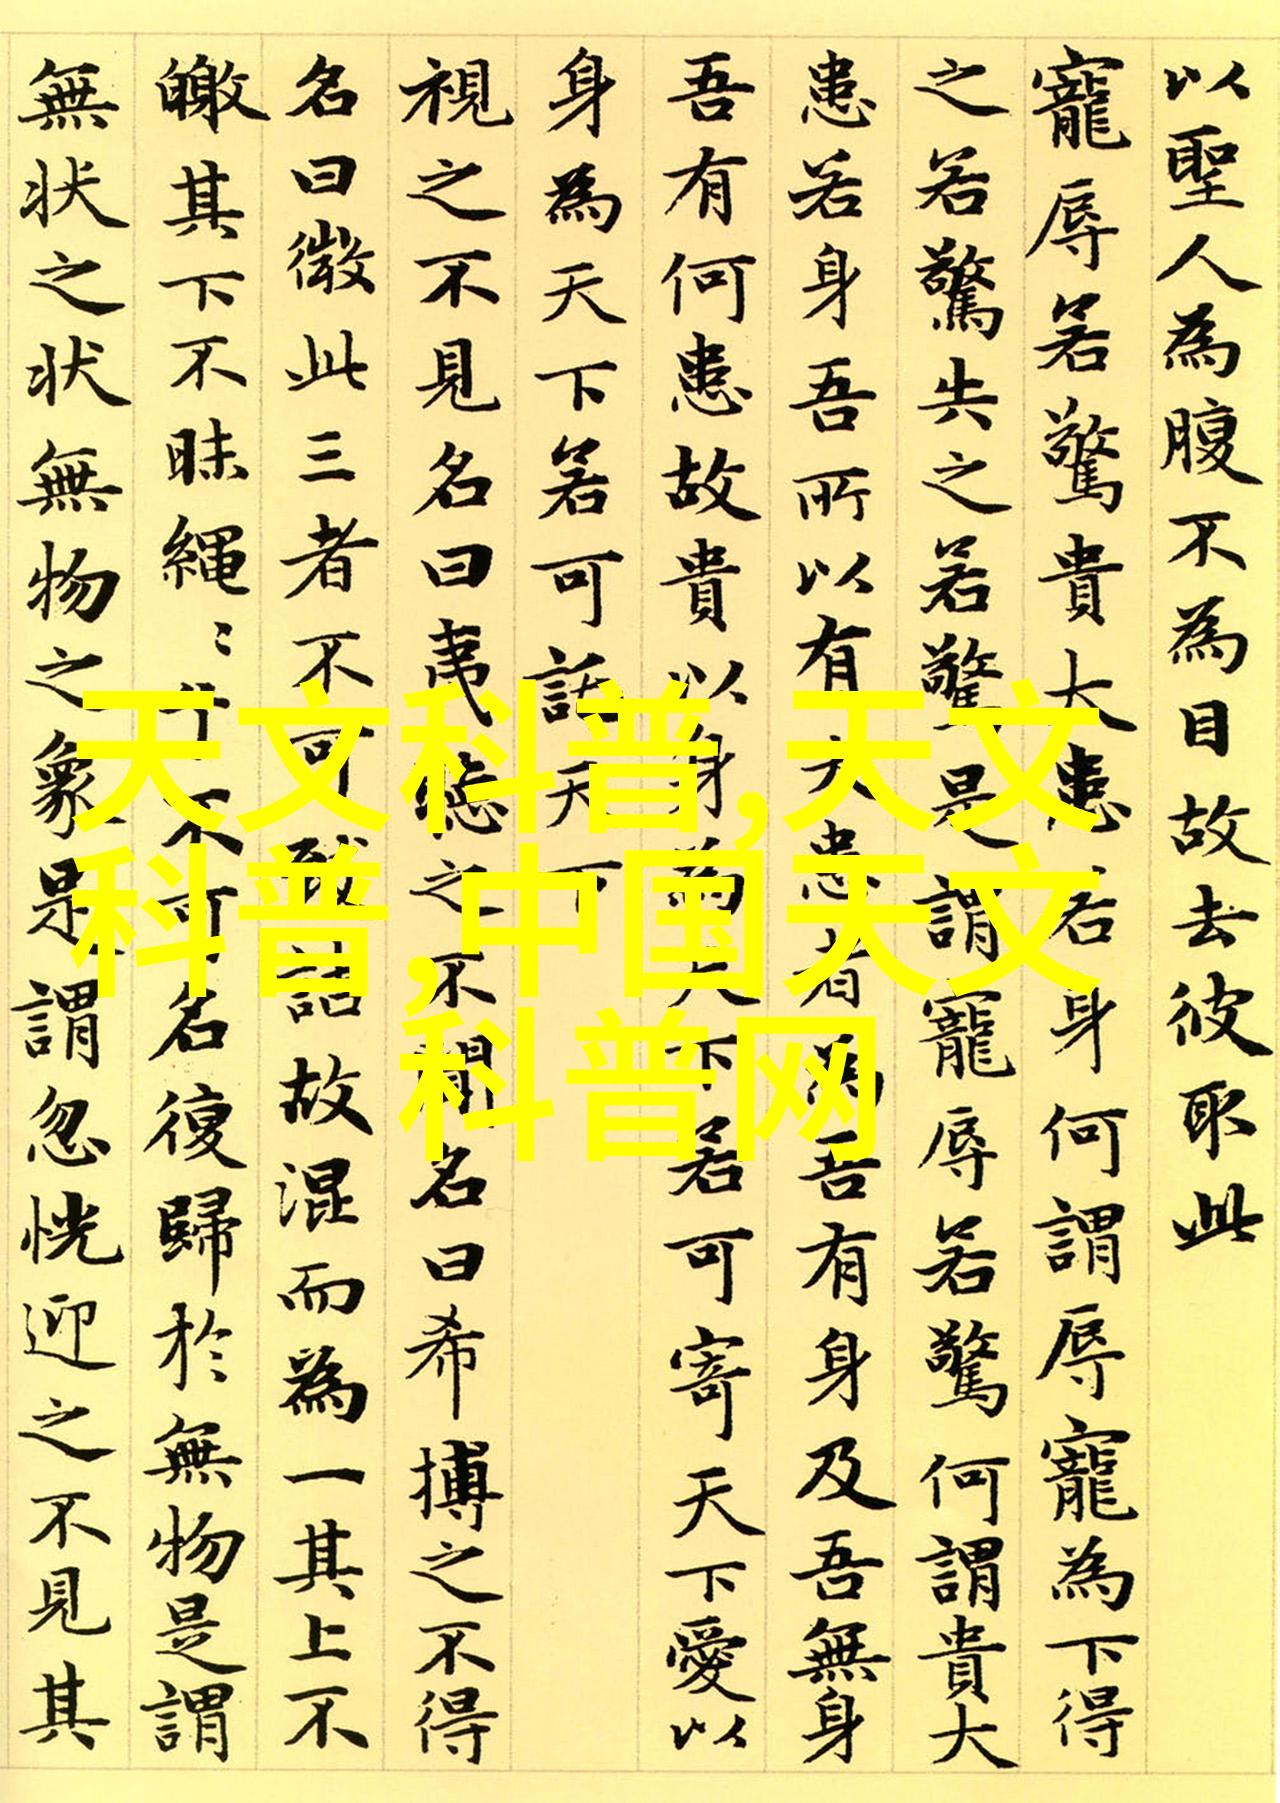 以聖人為腹不為目故去彼取此
寵辱若驚貴大患若身何謂辱寵為下得
之若驚失之若驚是謂寵辱若驚何謂貴大
患若身吾所以有大患者為吾有身及吾無身
吾有何患故貴以身為天下若可寄天下愛以
身為天下若可託天下
視之不見名曰夷聽之不聞名曰希搏之不得
名曰微此三者不可致詰故混而為一其上不
皦其下不昧繩〻兮不可名復歸於無物是謂
無状之状無物之象是謂忽恍迎之不見其
天文科普,天文
科普,中国天文
科普网